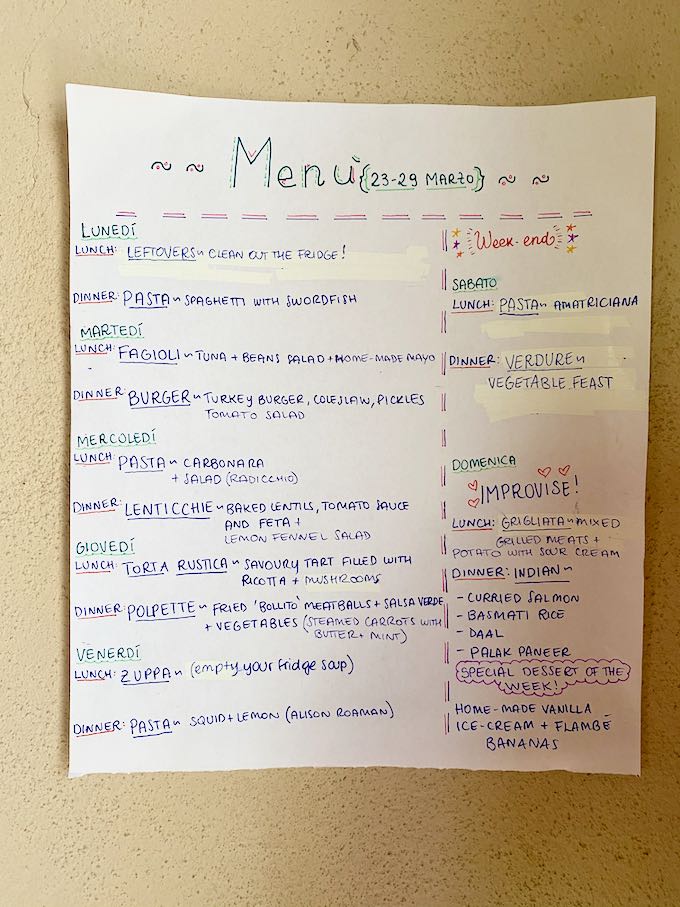 ~ ~ Menù {23-29 MARZO} ~ ~
LUNEDÍ
LUNCH: LEFTOVERS ~ CLEAN OUT THE FRIDGE!
DINNER: PASTA ~ SPAGHETTI WITH SWORDFISH
MARTEDÍ
LUNCH: FAGIOLI ~ TUNA + BEANS SALAD + HOME-MADE MAYO
DINNER: BURGER ~ TURKEY BURGER, COLESLAW, PICKLES
TOMATO SALAD
MERCOLEDÍ
LUNCH: PASTA ~ CARBONARA
+ SALAD (RADICCHIO)
DINNER: LENTICCHIE ~ BAKED LENTILS, TOMATO SAUCE
AND FETA +
LEMON FENNEL SALAD
GIOVEDÍ
LUNCH: TORTA RUSTICA ~ SAVOURY TART FILLED WITH
RICOTTA + MUSHROOMS
DINNER: POLPETTE ~ FRIED 'BOLLITO' MEATBALLS + SALSA VERDE
+ VEGETABLES (STEAMED CARROTS WITH
BUTTER + MINT)
VENERDÍ
LUNCH: ZUPPA ~ (empty your fridge soup)
DINNER: PASTA ~ SQUID + LEMON (ALISON ROAMAN)
Week-end
SABATO
LUNCH: PASTA ~ AMATRICIANA
DINNER: VERDURE ~
VEGETABLE FEAST
DOMENICA
IMPROVISE!
LUNCH: GRIGLIATA ~ MIXED
GRILLED MEATS +
POTATO WITH SOUR CREAM
DINNER: INDIAN ~
- CURRIED SALMON
- BASMATI RICE
- DAAL
- PALAK PANEER
SPECIAL DESSERT OF THE
WEEK!
HOME-MADE VANILLA
ICE-CREAM + FLAMBÉ
BANANAS